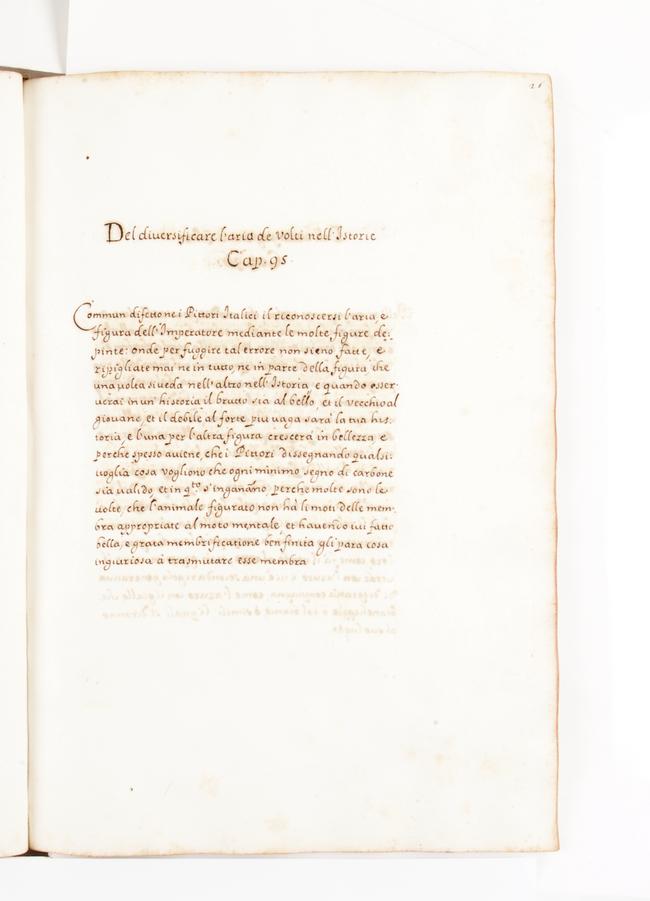 26
Del diversificare l'aria de volti nell'Istorie
Cap. 95.
Commun difetto ne i Pittori Italici il riconoscersi l'aria, e
figura dell'Imperatore mediante le molte figure de:
pinte: onde per fuggire tal errore non sieno fatte, e
ripigliate mai ne in tutto, ne in parte della figura che
una volta si veda nell'altro nell'Istoria, e quando osser:
verai in un'historia il brutto sia al bello, et il vecchio al
giovane, et il debile al forte più vaga sarà la tua his:
toria, e l'una per l'altra figura crescerà in bellezza, e
perche spesso aviene, che i Pittori dissegnando qualsi:
voglia cosa vogliono che ogni minimo segno di carbone
sia valido, et in q.to s'inganano, perche molte sono le
volte, che l'animale figurato non hà li moti delle mem:
bra appropriate al moto mentale, et havendo ivi fatto
bella, e grata membrificatione ben finita gli para cosa
ingiuriosa à trasmutare esse membra